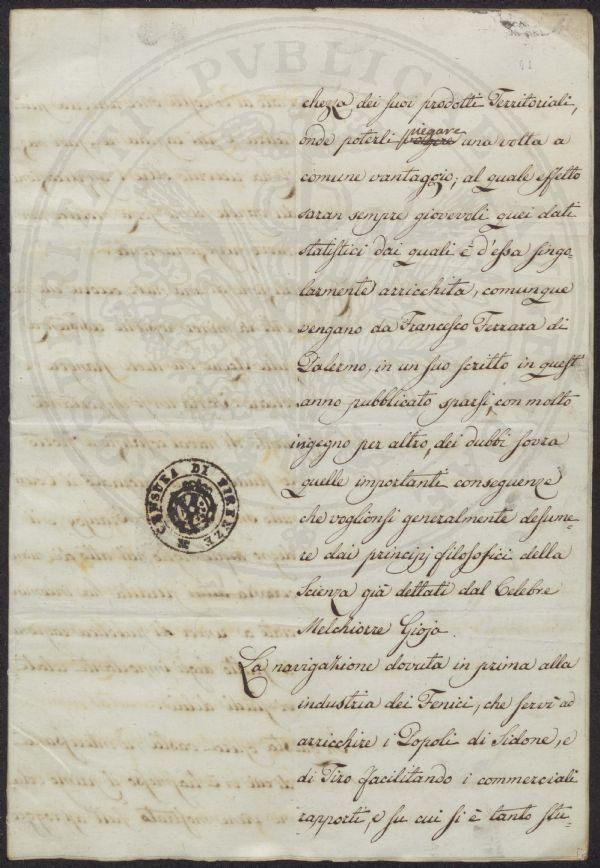 chezza dei suoi prodotti Territoriali,
onde poterli volgere piegare una volta a
comune vantaggio; al quale effetto
saran sempre giovevoli quei dati
statistici dai quali è d'essa singo
larmente arricchita, comunque
vengano da Francesco Ferrara di
Palermo, in un suo scritto in quest'
anno pubblicato sparsi, con molto
ingegno per altro, dei dubbi sovra
quelle importanti conseguenze
che voglionsi generalmente desume=
re dai principj filosofici della
Scienza già dettati dal Celebre
Melchiorre Gioja.
La navigazione dovuta in prima alla
industria dei Fenicj, che servì ad
arricchire i Popoli di Sidone, e
di Tiro facilitando i commerciali
rapporti, e su cui si è tanto stu=
CENSURA DI FIRENZE